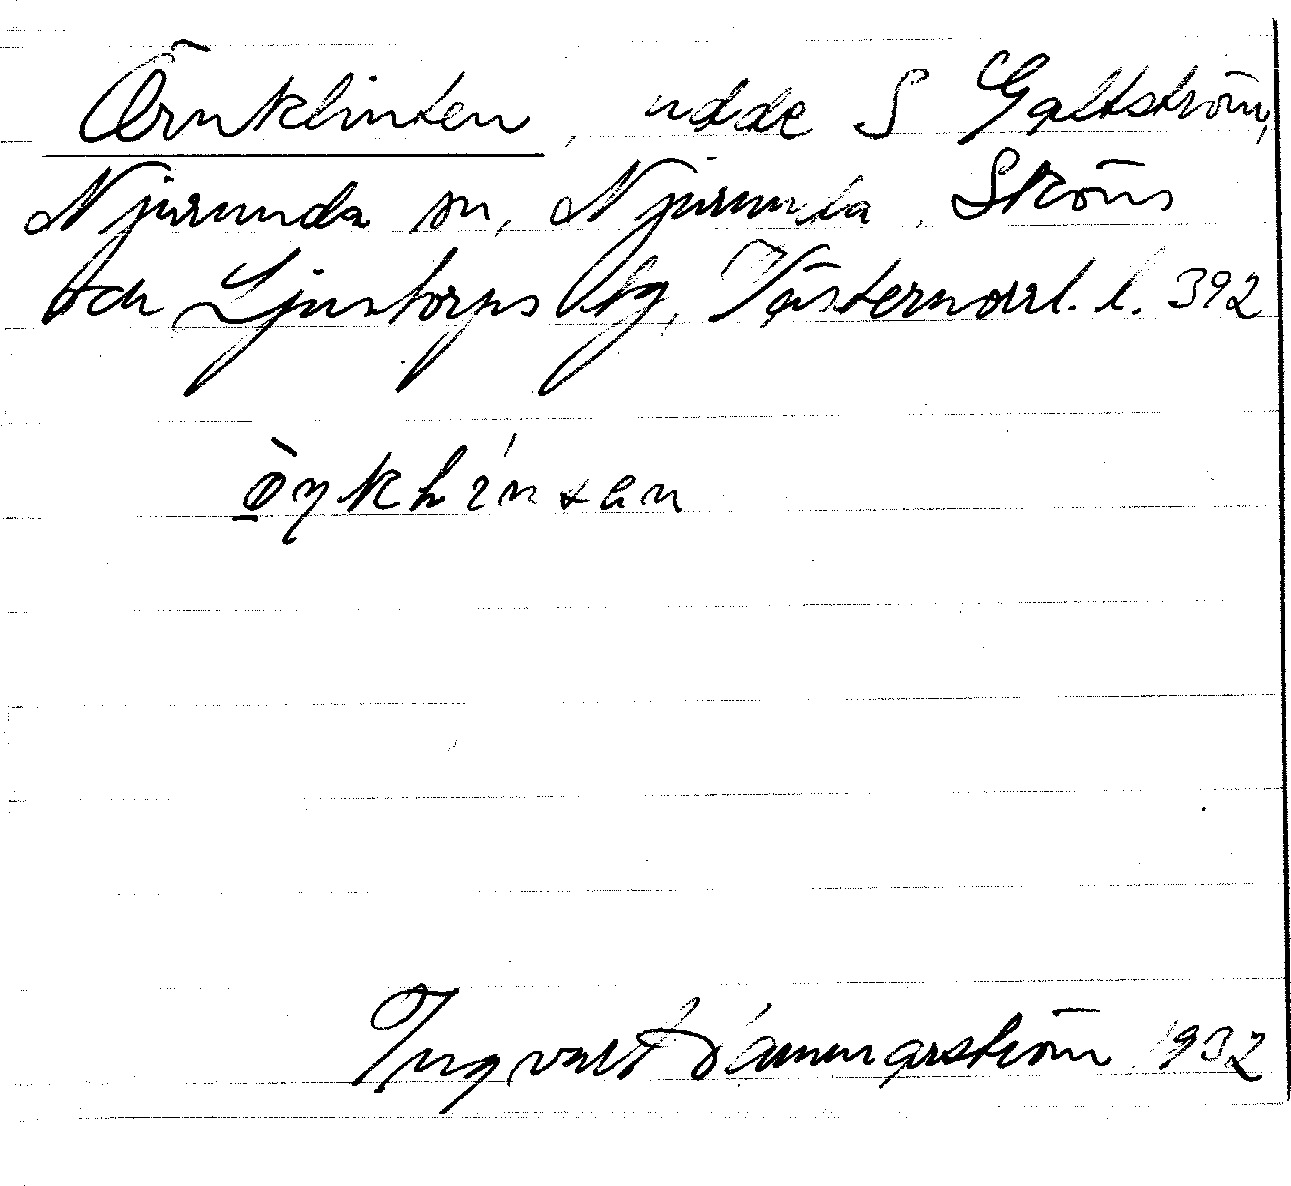 Örnklinten, udde S Galtström,
Njurunda sn, Njurunda, Sköns
och Ljustorps tg, Västernorrl. l. 392
Ingvart Hammarström 1932